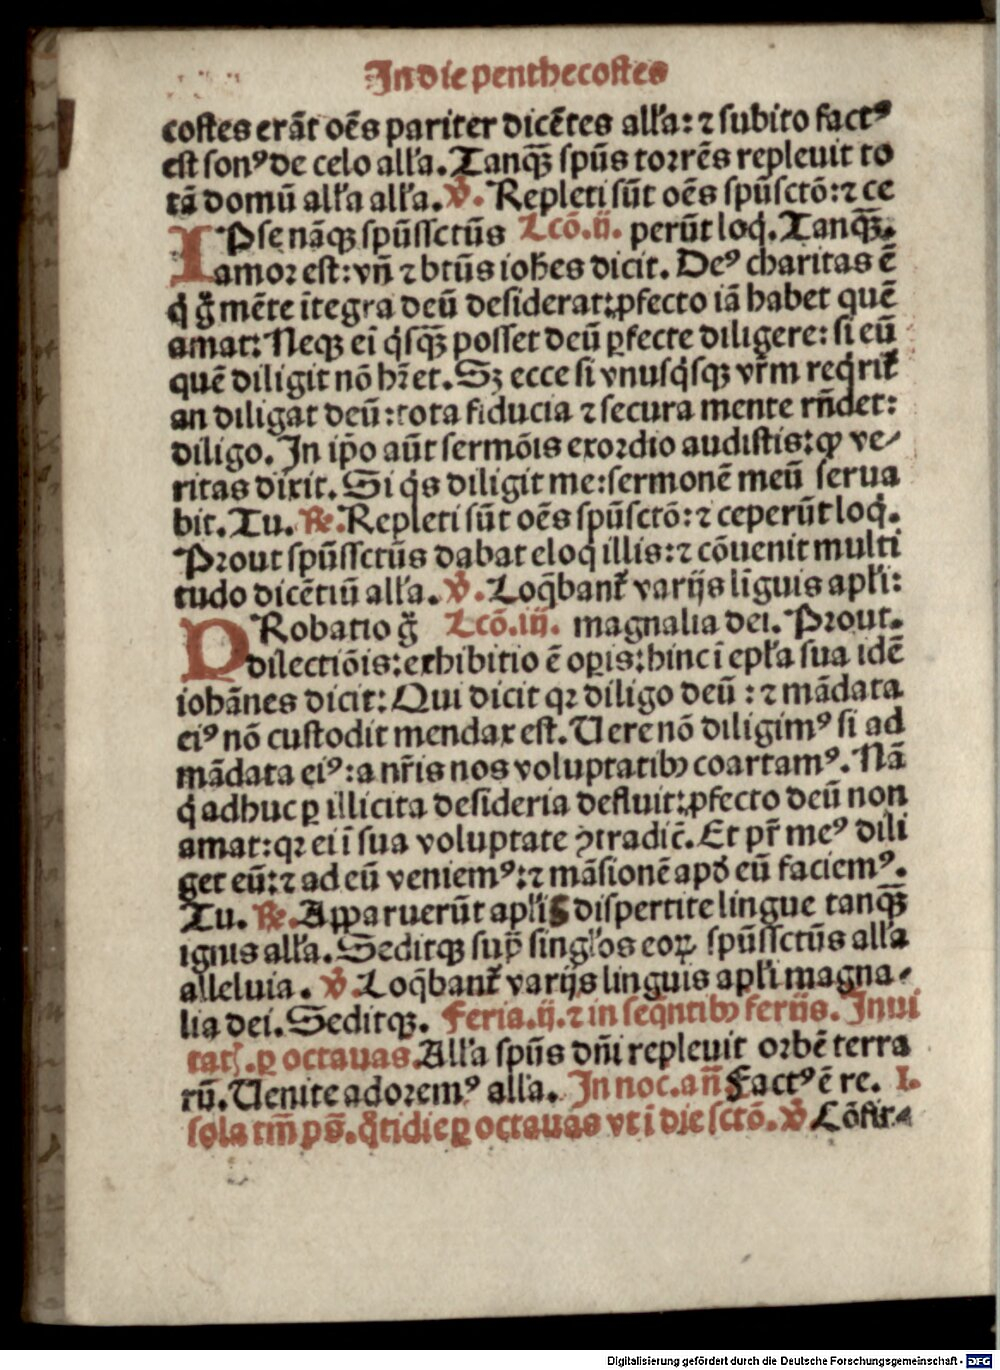 In die penthecostes
costes erāt oēs pariter dicētes all'a: ⁊ subito factꝰ
est sonꝰ de celo all'a. Tanq̄ꝫ spūs torrēs repleuit to
tā domū all'a all'a. ℣. Repleti sūt oēs spūsctō: ⁊ ce
IPse nāqꝫ spūssctūs Lcō.ij. perūt loq̇. Tanq̄ꝫ.
amor est: vñ ⁊ btūs ioħes dicit. Deꝰ charitas ē
q̇ g̃ mēte ītegra deū desiderat: ꝓfecto iā habet quē
amat: Neqꝫ ei q̇sq̄ꝫ posset deū ꝑfecte diligere: si eū
quē diligit nō hr̄et. Sꝫ ecce si vnusq̇sqꝫ vr̄m req̇rit᷑
an diligat deū: tota fiducia ⁊ secura mente rñdet:
diligo. In ip̄o aūt sermōis exordio audistis: ꝙ ve⸗
ritas dixit. Si q̇s diligit me: sermonē meū serua
bit. Tu. ℟. Repleti sūt oēs spūsctō: ⁊ ceperūt loq̇.
Prout spūssctūs dabat eloq̇ illis: ⁊ cōuenit multi
tudo dicētiū all'a. ℣. Loq̄bant᷑ varijs līguis apl'i:
PRobatio g̃ Lcō.iij. magnalia dei. Prout.
dilectiōis: exhibitio ē oꝑis: hinc ī epl'a sua idē
iohānes dicit: Qui dicit qꝛ diligo deū: ⁊ mādata
eiꝰ nō custodit mendax est. Uere nō diligimꝰ si ad
mādata eiꝰ: a nr̄is nos voluptatibꝫ coartamꝰ. Nā
q̇ adhuc ꝑ illicita desideria defluit: ꝓfecto deū non
amat: qꝛ ei ī sua voluptate ꝯtradic̄. Et pr̄ meꝰ dili
get eū: ⁊ ad eū veniemꝰ: ⁊ māsionē apd̓ eū faciemꝰ.
Tu. ℟. Apparuerūt apl'is dispertite lingue tanq̄ꝫ
ignis all'a. Seditqꝫ suꝑ singl'os eoꝝ spūssctūs all'a
alleluia. ℣. Loq̄bant᷑ varijs linguis apl'i magna⸗
lia dei. Seditqꝫ. Feria.ij. ⁊ in seq̄ntibꝫ ferijs. Inui
tat᷑. ꝑ octauas. All'a spūs dñi repleuit orbē terra
rū. Uenite adoremꝰ all'a. In noc. añ Factꝰ ē re. I.
sola tm̄ ꝑ s̄. q̊tidie ꝑ octauas vt ī die sctō. ℣ Cōfir⸗
Digitalisierung gefördert durch die Deutsche Forschungsgemeinschaft - DFG